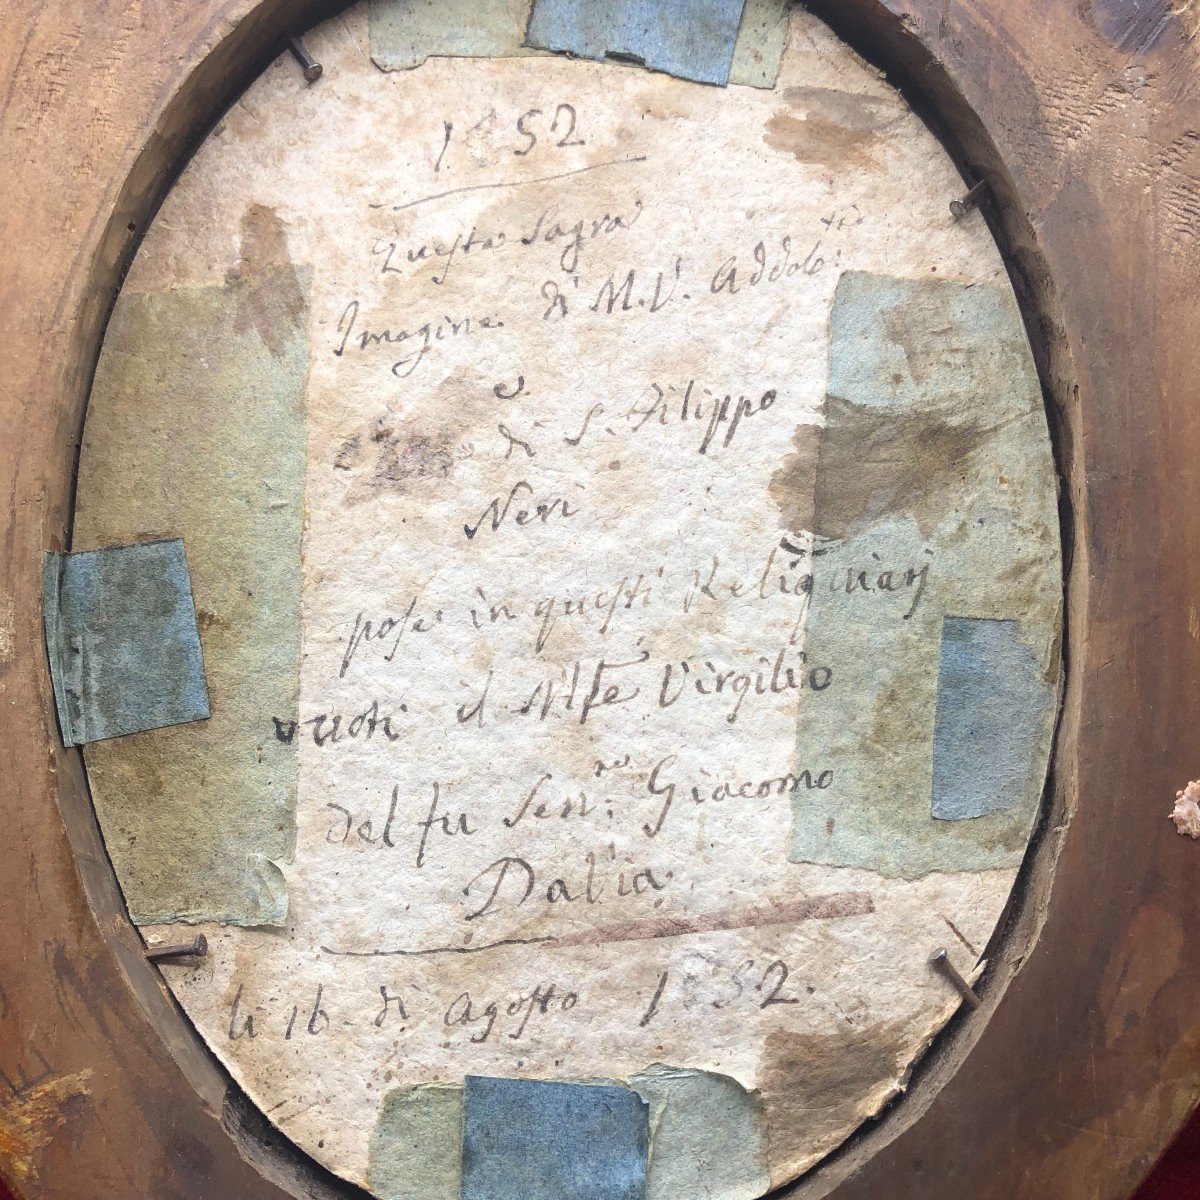 1852
Questa Sagra
Imagine di M. V. Addolo:
e
di S. Filippo
Neri
pose in questi Reliquiarj
vuoti il Virgilio
del fu Sen:re Giacomo
Dalla
li 16. di Agosto 1852.